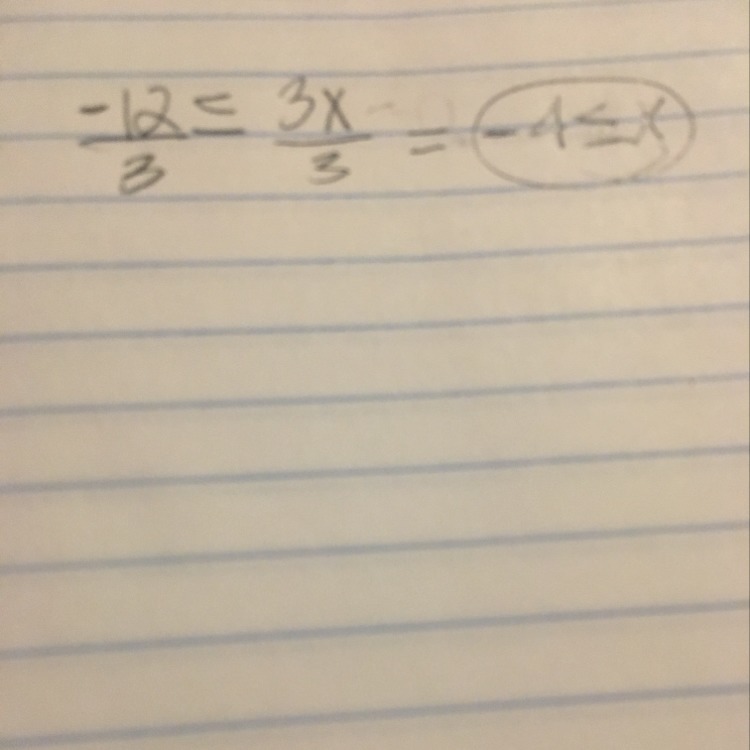 -12/3 ≤ 3x/3 = -4 ≤ x